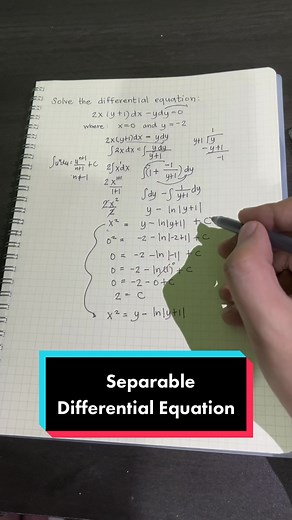 Solve the differential equation:
2x (y+1)dx - ydy = 0
where x=0 and y=-2
2x(y+1)dx = ydy
∫2xdx = ∫ydy/y+1
∫uⁿdu = uⁿ⁺¹/n+1 + C
n≠-1
2∫x¹dx
∫(1 + -1/y+1)dy
1
y+1 √y
-y+1
-1
2x¹⁺¹/1+1
∫dy - ∫1/y+1 dy
2x²/2
y - ln|y+1|
x² = y - ln|y+1| + C
0² = -2 - ln|-2+1| + C
0 = -2 - ln|-1| + C
0 = -2 - ln(1)⁰ + C
0 = -2 - 0 + C
2 = C
x² = y - ln|y+1|
Separable
Differential Equation